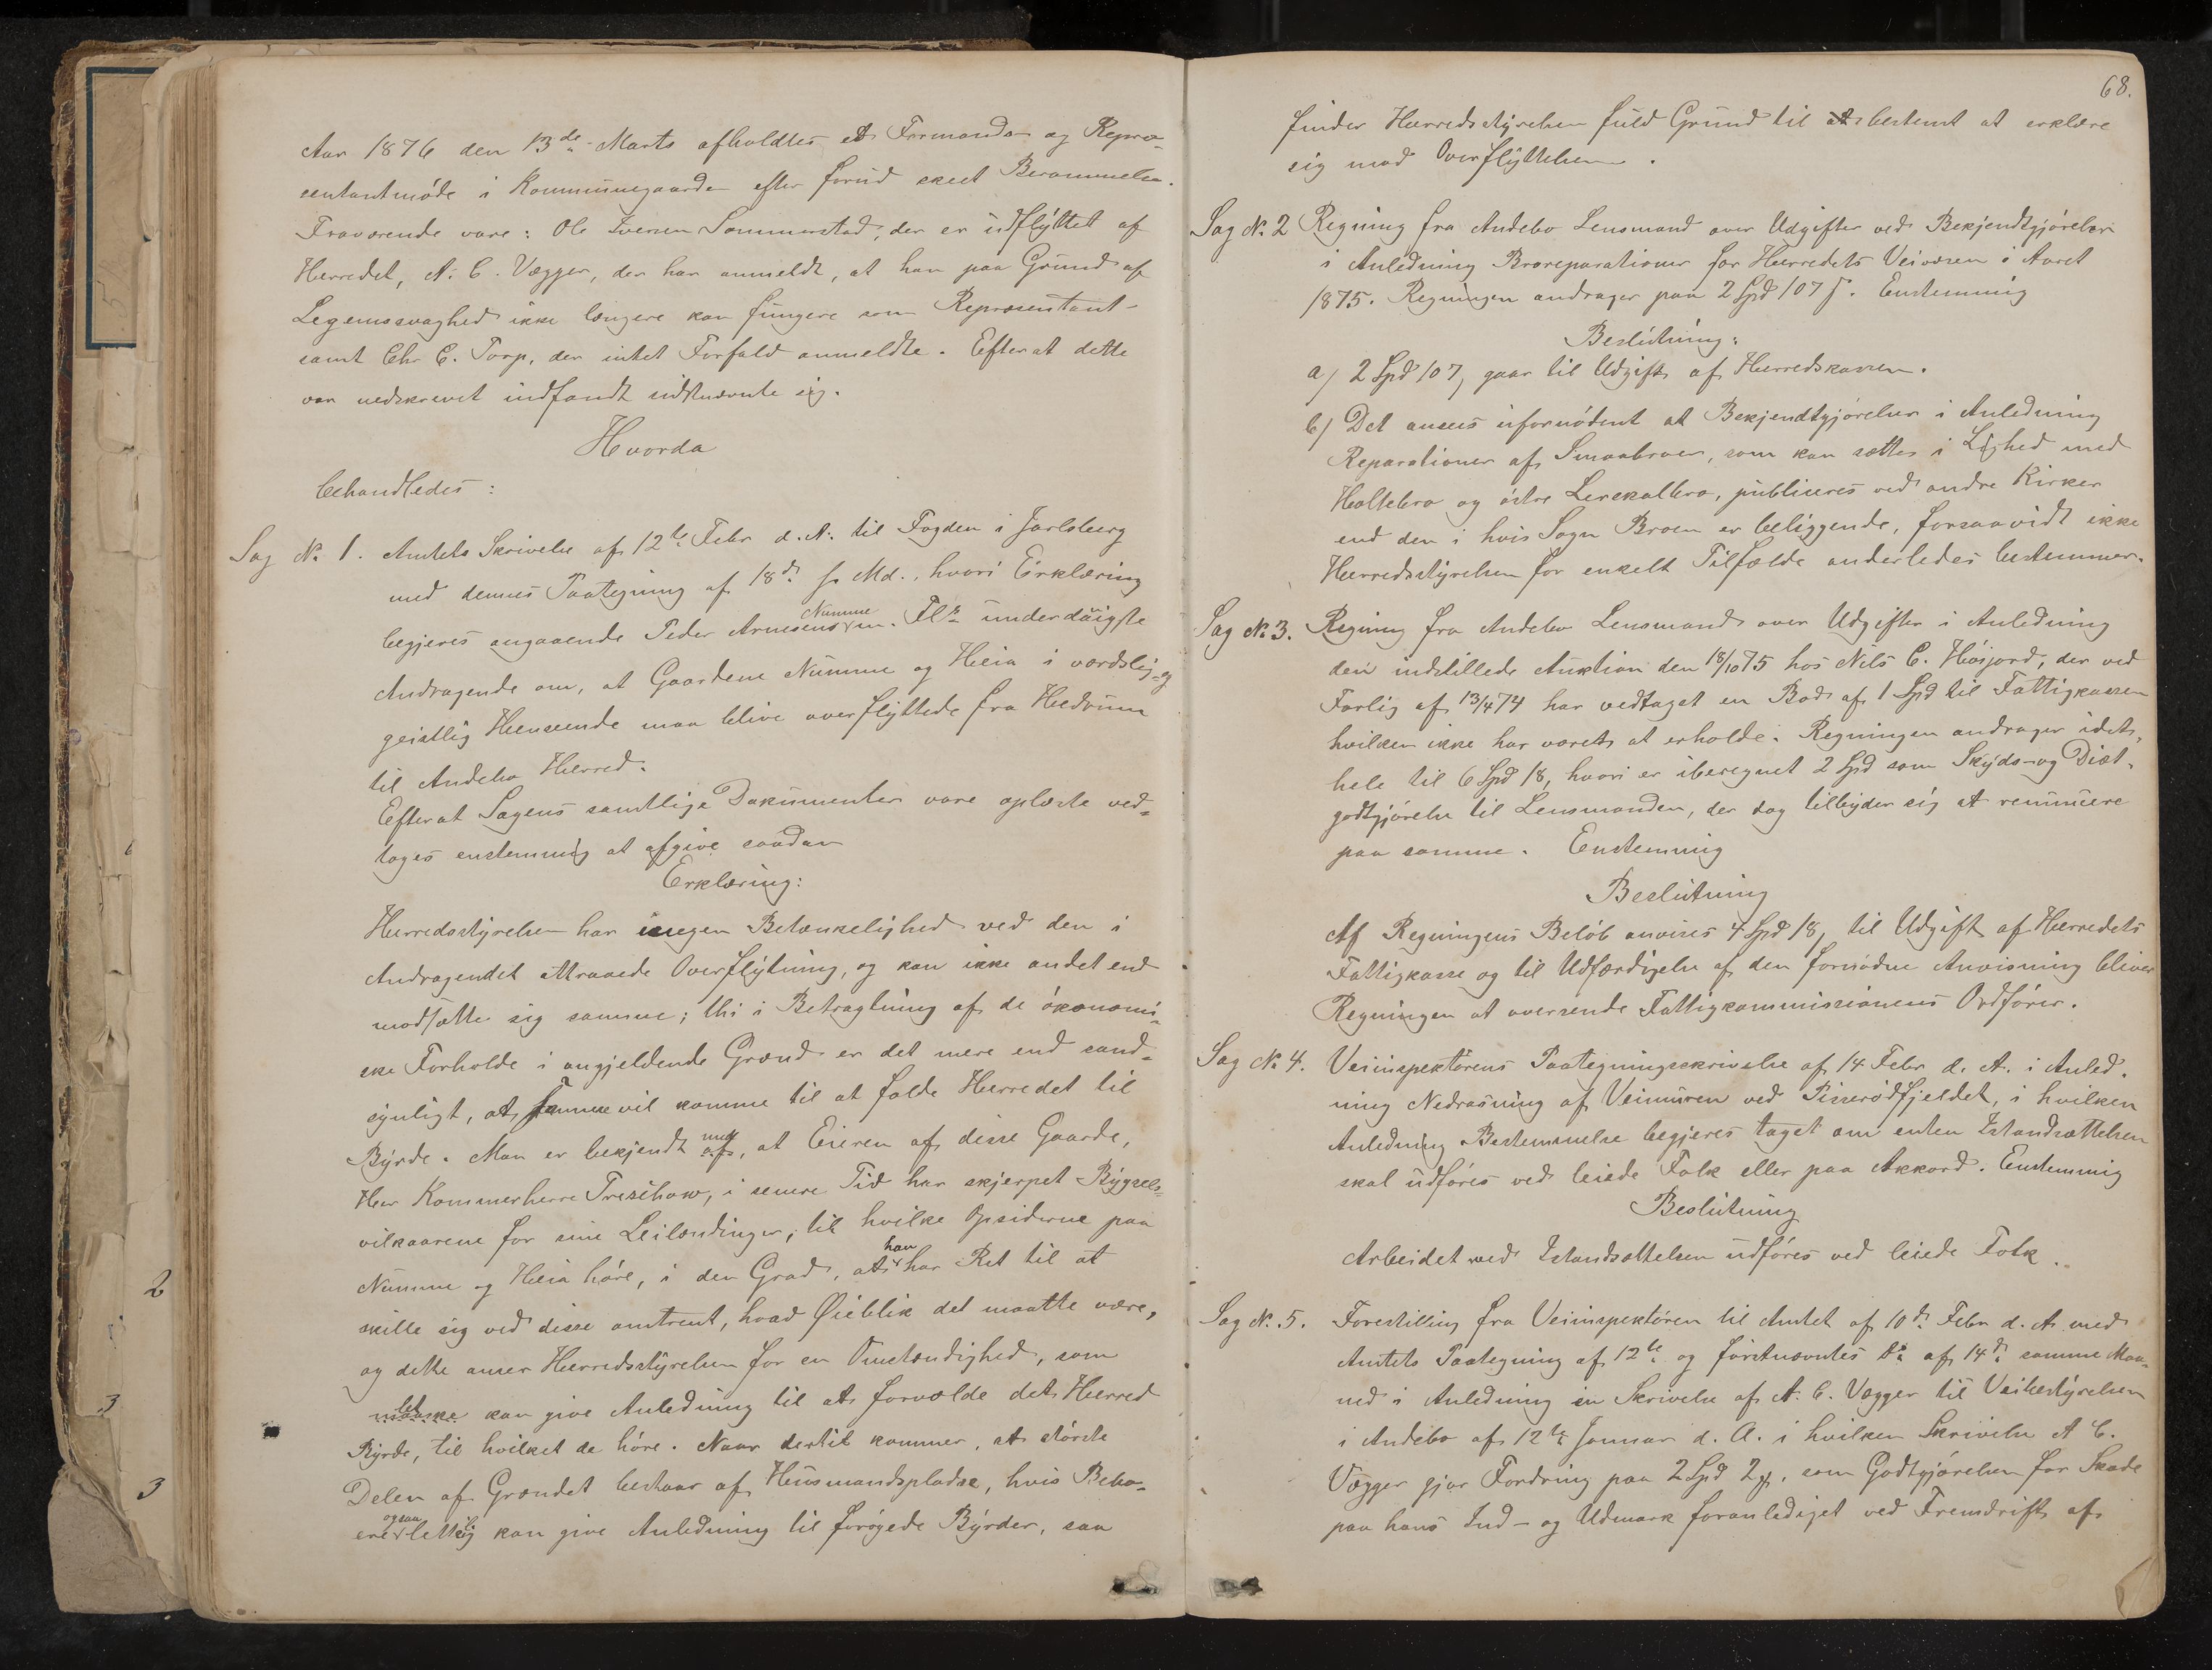 Aar 1876 den 13de Marts afholdtes et Formands- og Repræ-
sentantmöde i Kommunegaarden efter forud skeet Berammelse.
Fraværende vare: Ole Iversen Sommerstad, der er udflyttet af
Herredet, A. C. Vegger, der har anmeldt, at han paa Grund af
Legemssvaghed ikke længere kan fungere som Repræsentant
samt Chr C. Torp, der intet Forfald anmeldte. Efterat dette
var nedskrevet indfandt sidstnævnte sig.
Hvorda
behandledes:
Sag No. 1. Amtets Skrivelse af 12te Febr d. A. til Fogden i Jarlsberg
med dennes Paategning af 18de s. Md., hvori Erklæring
begjeres angaaende Peder Arnesens Numme m. Fl's underdaigste
Andragende om, at Gaardene Numme og Heia i verdslig- og
geistlig Henseende maa blive overflyttede fra Hedrum
til Andebo Herred.
Efterat Sagens samtlige Dokumenter vare oplæste ved-
toges enstemmig at afgive saadan
Erklæring:
Herredsstyrelsen har ingen Betænkelighed ved den i
Andragendet attraaede Overflytning, og kan ikke andet end
modsætte sig samme; thi i Betragtning af de ökonomi-
ske Forholde i angjeldende Grænd er det mere end sand-
synligt, at samme vil komme til at falde Herredet til
Byrde. Man er bekjendt af med, at Eieren af disse Gaarde,
Herr Kammerherre Treschow, i senere Tid har skjerpet Bygsels-
vilkaarene for sine Leilændinger, til hvilke Opsiderne paa
Numme og Heia höre, i den Grad, at han har Ret til at
skille sig ved disse omtrent, hvad Øieblik det maatte være,
og dette anser Herredsstyrelsen for en Omstændighed, som
maaske let kan give Anledning til at forvolde det Herred
Byrde, til hvilket de höre. Naar dertil kommer, at störste
Delen af Grændet bestaar af Husmandspladse, hvis Bebo-
ere ogsaa lettelig kan give Anledning til forögede Byrder, saa
68.
finder Herredsstyrelsen fuld Grund til at bestemt at erklære
sig mod Overflyttelsen.
Sag No. 2 Regning fra Andebo Lensmand over Udgifter ved Bekjendtgjörelser
i Anledning Broreparationer for Herredets Veivæsen i Aaret
1875. Regningen andrager paa 2 Spd 107 s. Enstemmig
Beslutning:
a) 2 Spd 107, gaar til Udgift af Herredskassen.
b) Det ansees ufornödent at Bekjendtgjörelser i Anledning
Reparationer af Smaabroer, som kan sættes i Lighed med
Holtebro og östre Lerskalbro, publiceres ved andre Kirker
end den i hvis Sogn Broen er beliggende, forsaavidt ikke
Herredsstyrelsen for enkelt Tilfælde anderledes bestemmer.
Sag No 3. Regning fra Andebo Lensmand over Udgifter i Anledning
den indstillede Auktion den 18/10 75 hos Nils C. Høsjord, der ved
Forlig af 13/4 74 har vedtaget en Bod af 1 Spd til Fattigkassen
hvilken ikke har været at erholde. Regningen andrager idet-
hele til 6 Spd 18, hvori er iberegnet 2 Spd som Skyds- og Diæt-
godtgjörelse til Lensmanden, der dog tilbyder sig at renuncere
paa samme. Enstemmig
Beslutning
Af Regningens Belöb anvises 4 Spd 18, til Udgift af Herredets
Fattigkasse og til Udfærdigelse af den fornödne Anvisning bliver
Regningen at oversende Fattigkommissionens Ordförer.
Sag No 4. Veiinspektörens Paategningsskrivelse af 14 Febr d. A. i Anled-
ning Nedrasning af Veimuren ved Pisserödfjeldet, i hvilken
Anledning Bestemmelse begjeres taget om enten Istandsættelsen
skal udföres ved leiede Folk eller paa Akkord. Enstemmig
Beslutning
Arbeidet ved Istandsættelsen udföres ved leiede Folk.
Sag No. 5. Forestilling fra Veiinspektören til Amtet af 10de Febr d. A. med
Amtets Paategning af 12te og förstnævntes Do af 14de samme Maa-
ned i Anledning en Skrivelse af A. C. Vegger til Veibestyrelsen
i Andebo af 12te Januar d. A. i hvilken Skrivelse A C.
Vegger gjör Fordring paa 2 Spd 2 , som Godtgjörelse for Skade
paa hans Ind- og Udmark foranlediget ved Fremdrift af